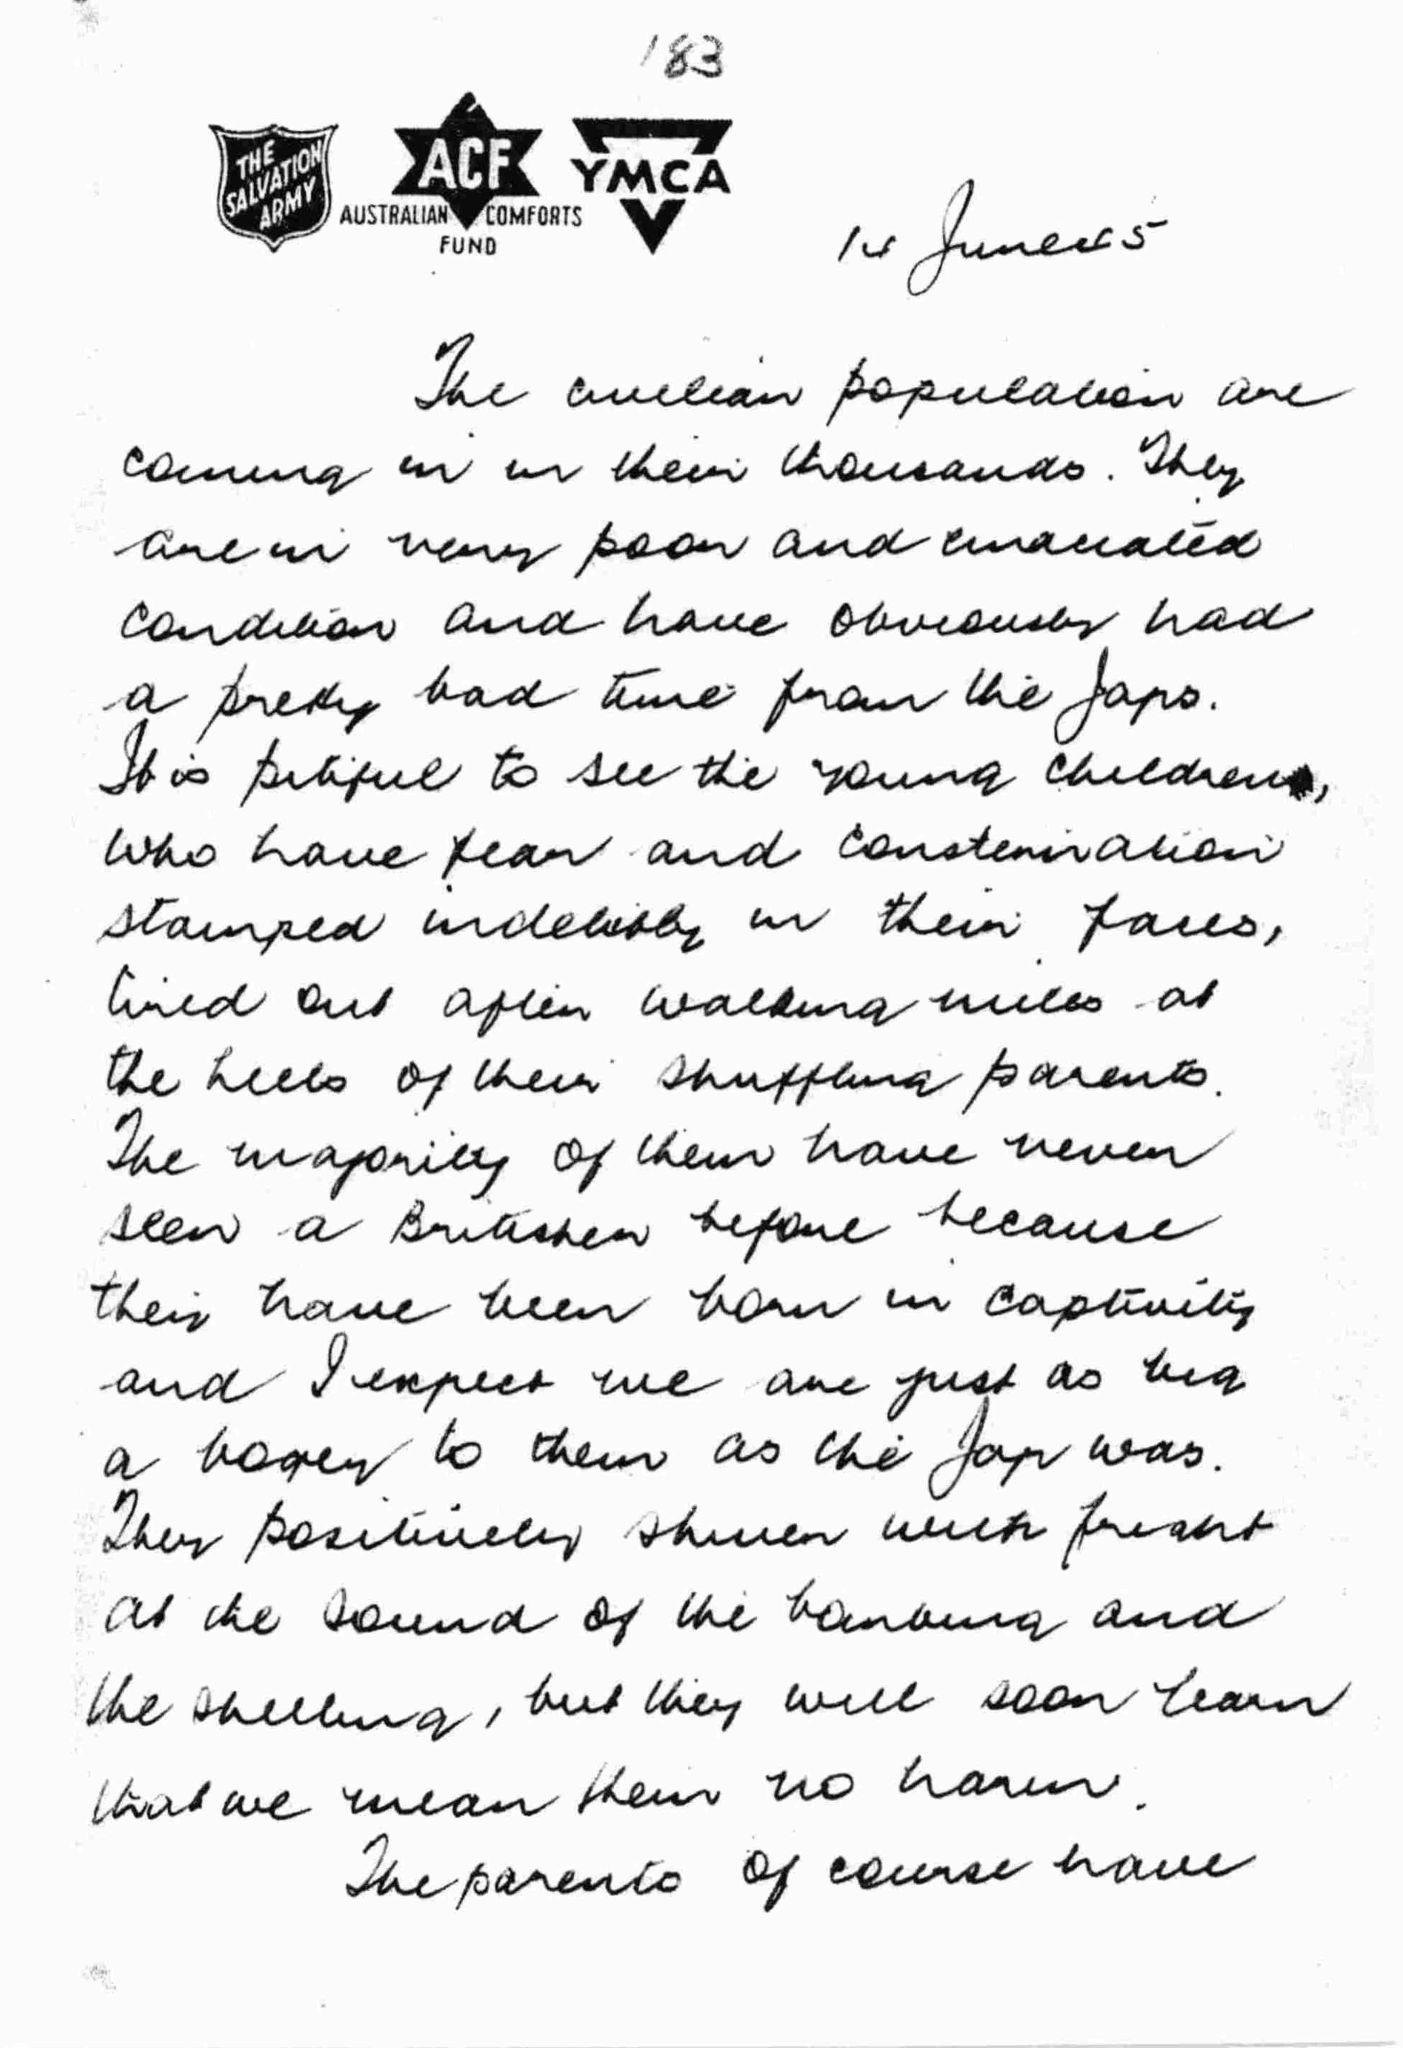 183
THE SALVATION ARMY
ACF
AUSTRALIAN COMFORTS
FUND
YMCA
14 June 45
The civilian population are
coming in in their thousands. They
are in very poor and emaciated
condition and have obviously had
a pretty bad time from the Japs.
It is pitiful to see the young children,
who have fear and consternation
stamped indelibly in their faces,
tired out after walking miles at
the heels of their shuffling parents.
The majority of them have never
seen a Britisher before because
they have been born in captivity
and I expect we are just as big
a bogey to them as the Jap was.
They positively shiver with fright
at the sound of the bombing and
the shelling, but they will soon learn
that we mean them no harm.
The parents of course have